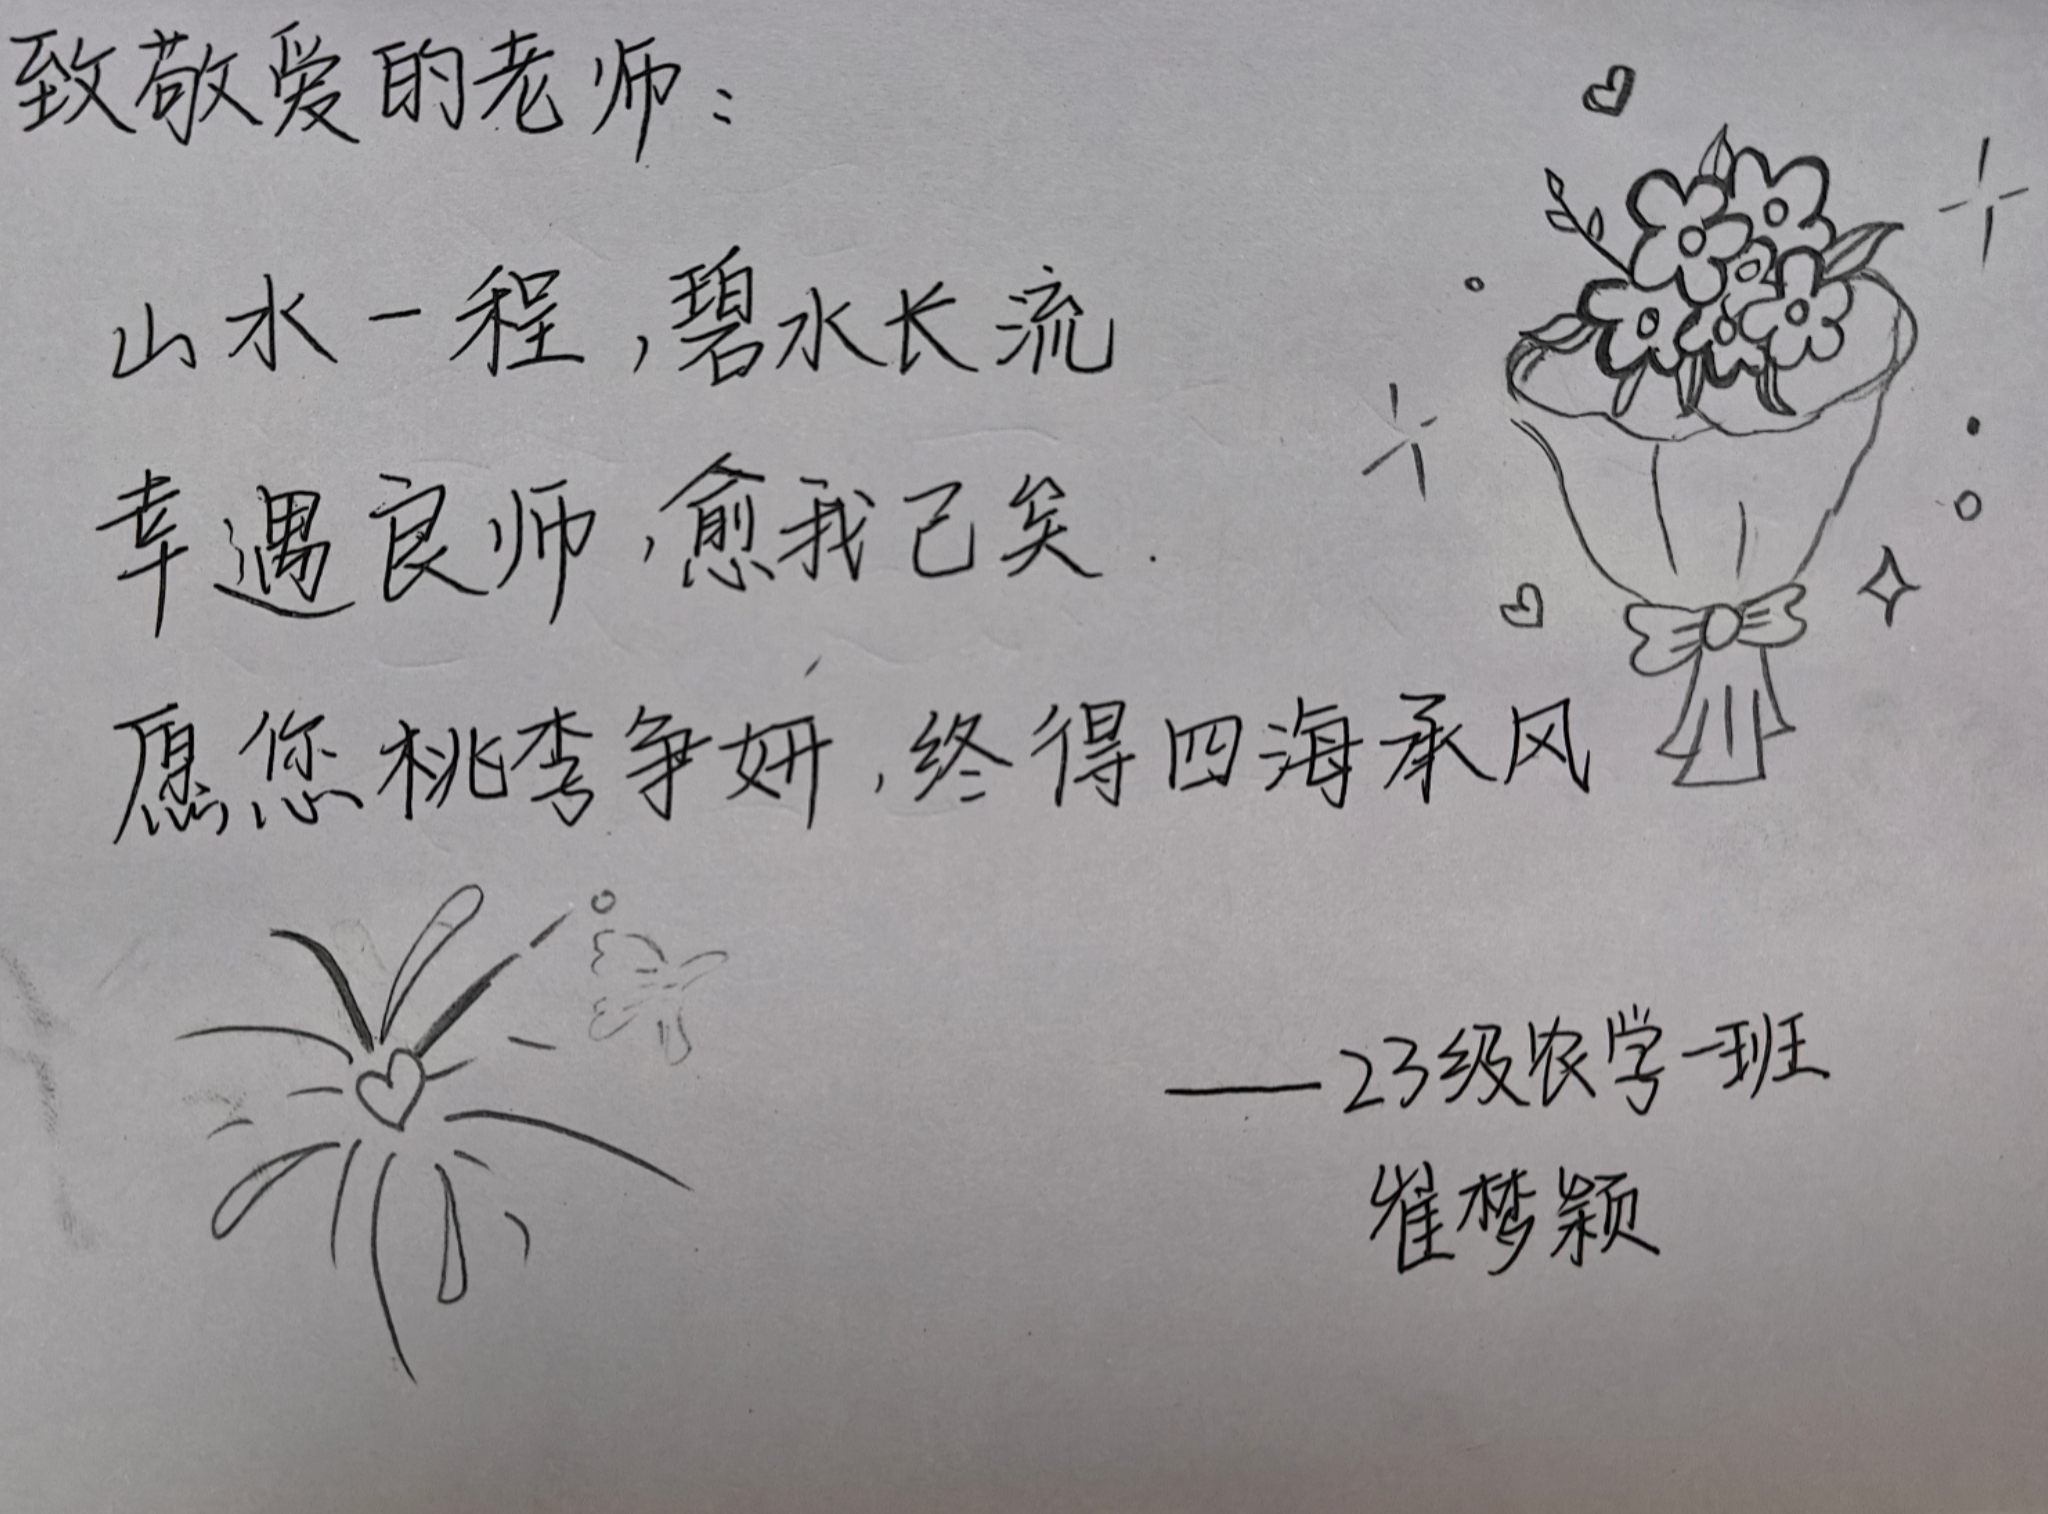 致敬爱的老师：
山水一程，碧水长流
幸遇良师，愈我己矣.
愿您桃李争妍，终得四海承风
——23级农学一班
崔梦颖